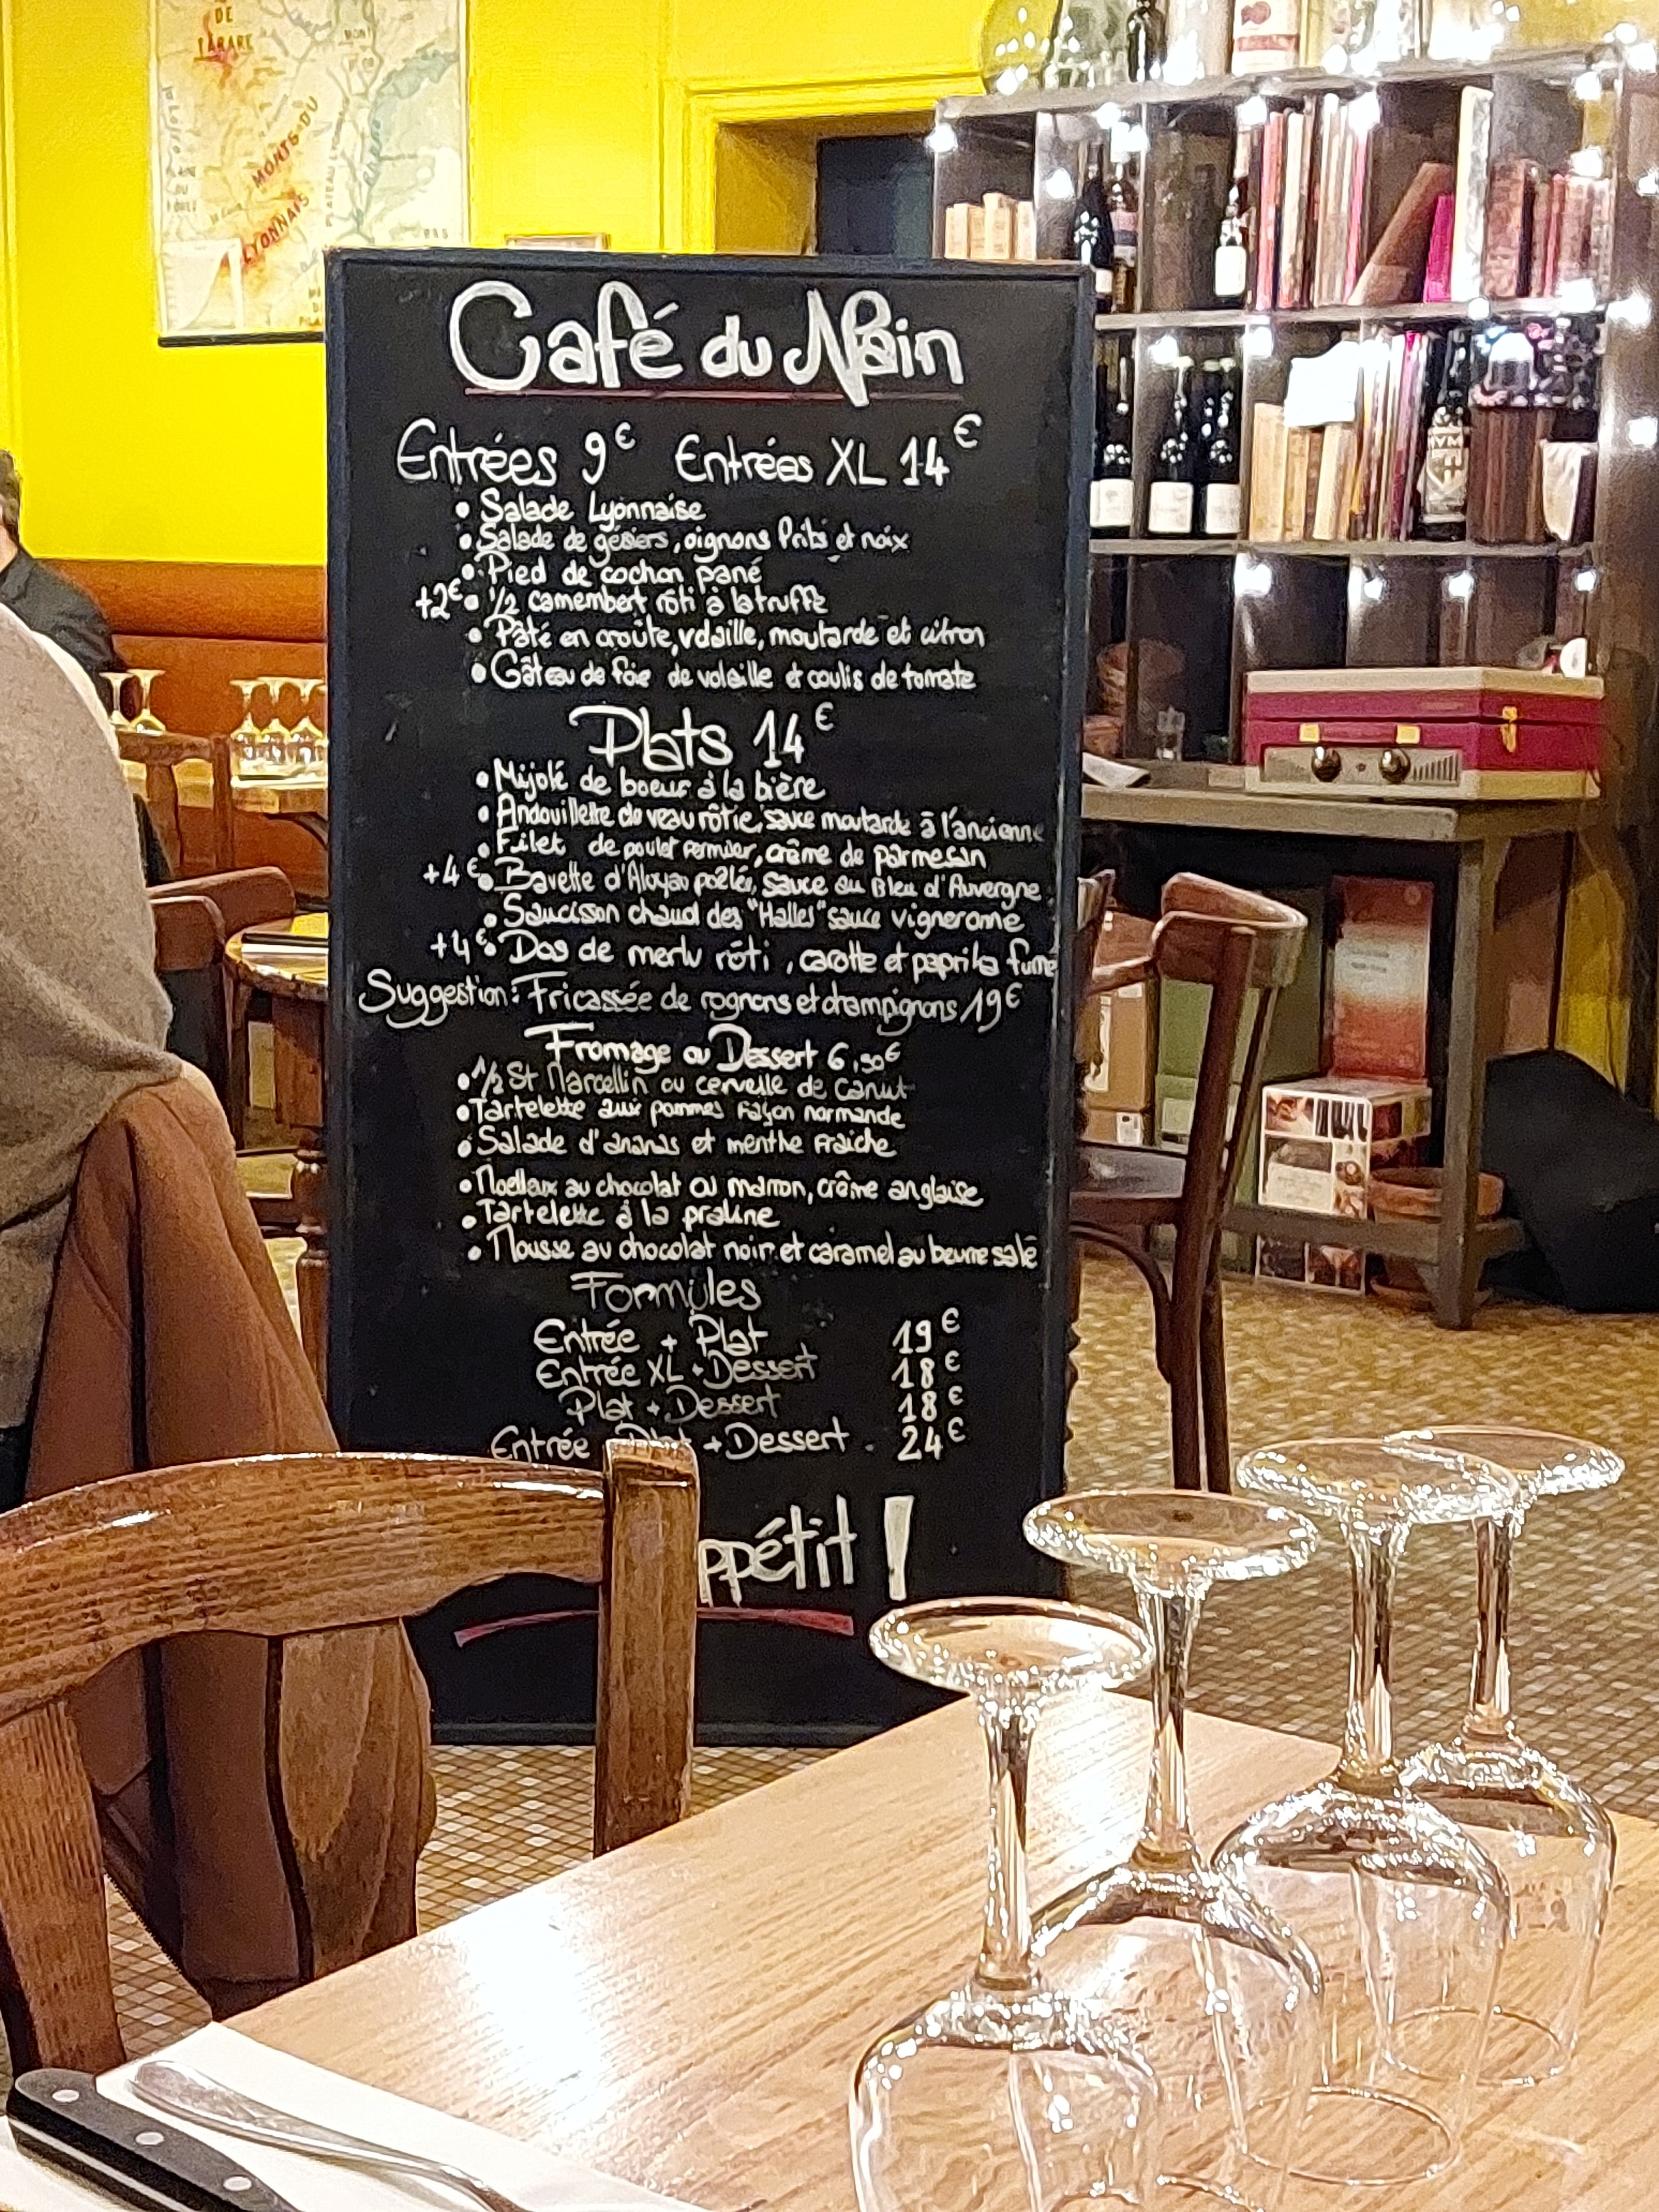 DE
TARARE
MONTS DU
LYONNAIS
Café du Nain
Entrées 9€ Entrées XL 14€
• Salade Lyonnaise
• Salade de gésiers, oignons frits et noix
• Pied de cochon pané
+2€ • 1/2 camembert rôti à la truffe
• Pâté en croûte, volaille, moutarde et citron
• Gâteau de foie de volaille et coulis de tomate
Plats 14€
• Mijoté de boeuf à la bière
• Andouillette de veau rôtie, sauce moutarde à l'ancienne
• Filet de poulet fermier, crème de parmesan
+4€ • Bavette d'Aloyau poêlée, sauce au Bleu d'Auvergne
• Saucisson chaud des "Halles" sauce vigneronne
+4€ • Dos de merlu rôti, carotte et paprika fumé
Suggestion: Fricassée de rognons et champignons 19€
Fromage ou Dessert 6,50€
• 1/2 St Marcellin ou cervelle de canut
• Tartelette aux pommes façon normande
• Salade d'ananas et menthe fraiche
• Moelleux au chocolat ou marron, crème anglaise
• Tartelette à la praline
• Mousse au chocolat noir et caramel au beurre salé
Formules
Entrée + Plat 19€
Entrée XL + Dessert 18€
Plat + Dessert 18€
Entrée Plat + Dessert . 24€
ppétit !